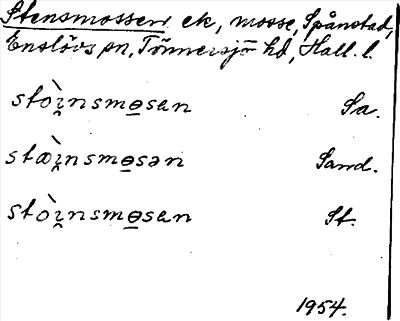 Stensmossen ek, mosse, Spånstad,
Enslövs sn, Tönnersjö hd, Hall. l.
stòı̯nsmo̲sen Sa.
stæ̀ı̯nsmo̲sən Sand.
stòı̯nsmo̲sen St.
1954.